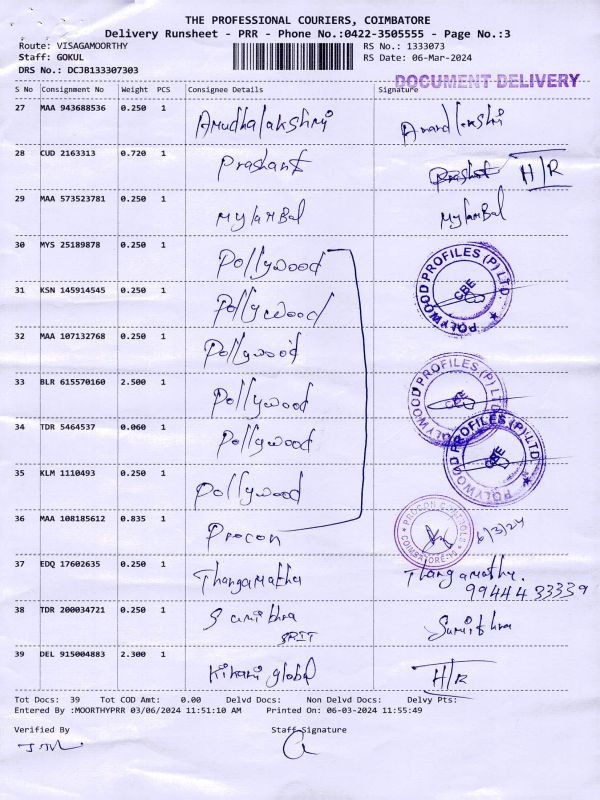 THE PROFESSIONAL COURIERS, COIMBATORE
Delivery Runsheet - PRR - Phone No.:0422-3505555 - Page No.:3
Route: VISAGAMOORTHY RS No.: 1333073
Staff: GOKUL RS Date: 06-Mar-2024
DRS No.: DCJB133307303
DOCUMENT DELIVERY
S No Consignment No Weight PCS Consignee Details Signature
27 MAA 943688536 0.250 1 Amudhalakshmi
28 CUD 2163313 0.720 1 Prashant Prashant H/R
29 MAA 573523781 0.250 1 Mylambal Mylambal
30 MYS 25189878 0.250 1 Pollywood
POLYWOOD PROFILES (P) LTD. CBE
31 KSN 145914545 0.250 1 Pollywood
32 MAA 107132768 0.250 1 Pollywood
33 BLR 615570160 2.500 1 Pollywood
POLYWOOD PROFILES (P) LTD. CBE
34 TDR 5464537 0.060 1 Pollywood
POLYWOOD PROFILES (P) LTD. CBE
35 KLM 1110493 0.250 1 Pollywood
36 MAA 108185612 0.835 1 Procon 6/3/24
PROCON CONTROLS COIMBATORE
37 EDQ 17602635 0.250 1 Thangamathu Thangamathy.
99444 33339
38 TDR 200034721 0.250 1 Sumithra Sumithra
SRIT
39 DEL 915004883 2.300 1 global H/R
Tot Docs: 39 Tot COD Amt: 0.00 Delvd Docs: Non Delvd Docs: Delvy Pts:
Entered By :MOORTHYPRR 03/06/2024 11:51:10 AM Printed On: 06-03-2024 11:55:49
Verified By Staff Signature